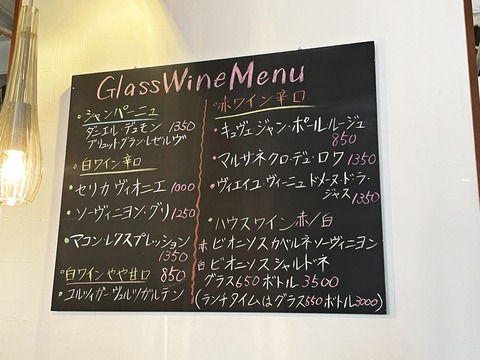 GlassWineMenu
・シャンパーニュ
ダニエル・デュモン 1350
ブリュットグラン・レゼルヴ
・白ワイン辛口
・セリカ ヴィオニエ 1000
・ソーヴィニヨン・グリ 1250
・マコンレクスプレッション
1350
・白ワインやや甘口 850
・コルツィガーヴュルツガルテン
・赤ワイン辛口
・キュヴェ ジャン・ポールルージュ
850
・マルサネクロ・デュ・ロワ 1350
・ヴィエイユ・ヴィーニュ ドメーヌ・ド・ラ・
ジャス 1350
・ハウスワイン 赤/白
赤 ビオニソスカベルネソーヴィニヨン
白 ビオニソスシャルドネ
グラス650 ボトル3500
(ランチタイムはグラス550ボトル3000)